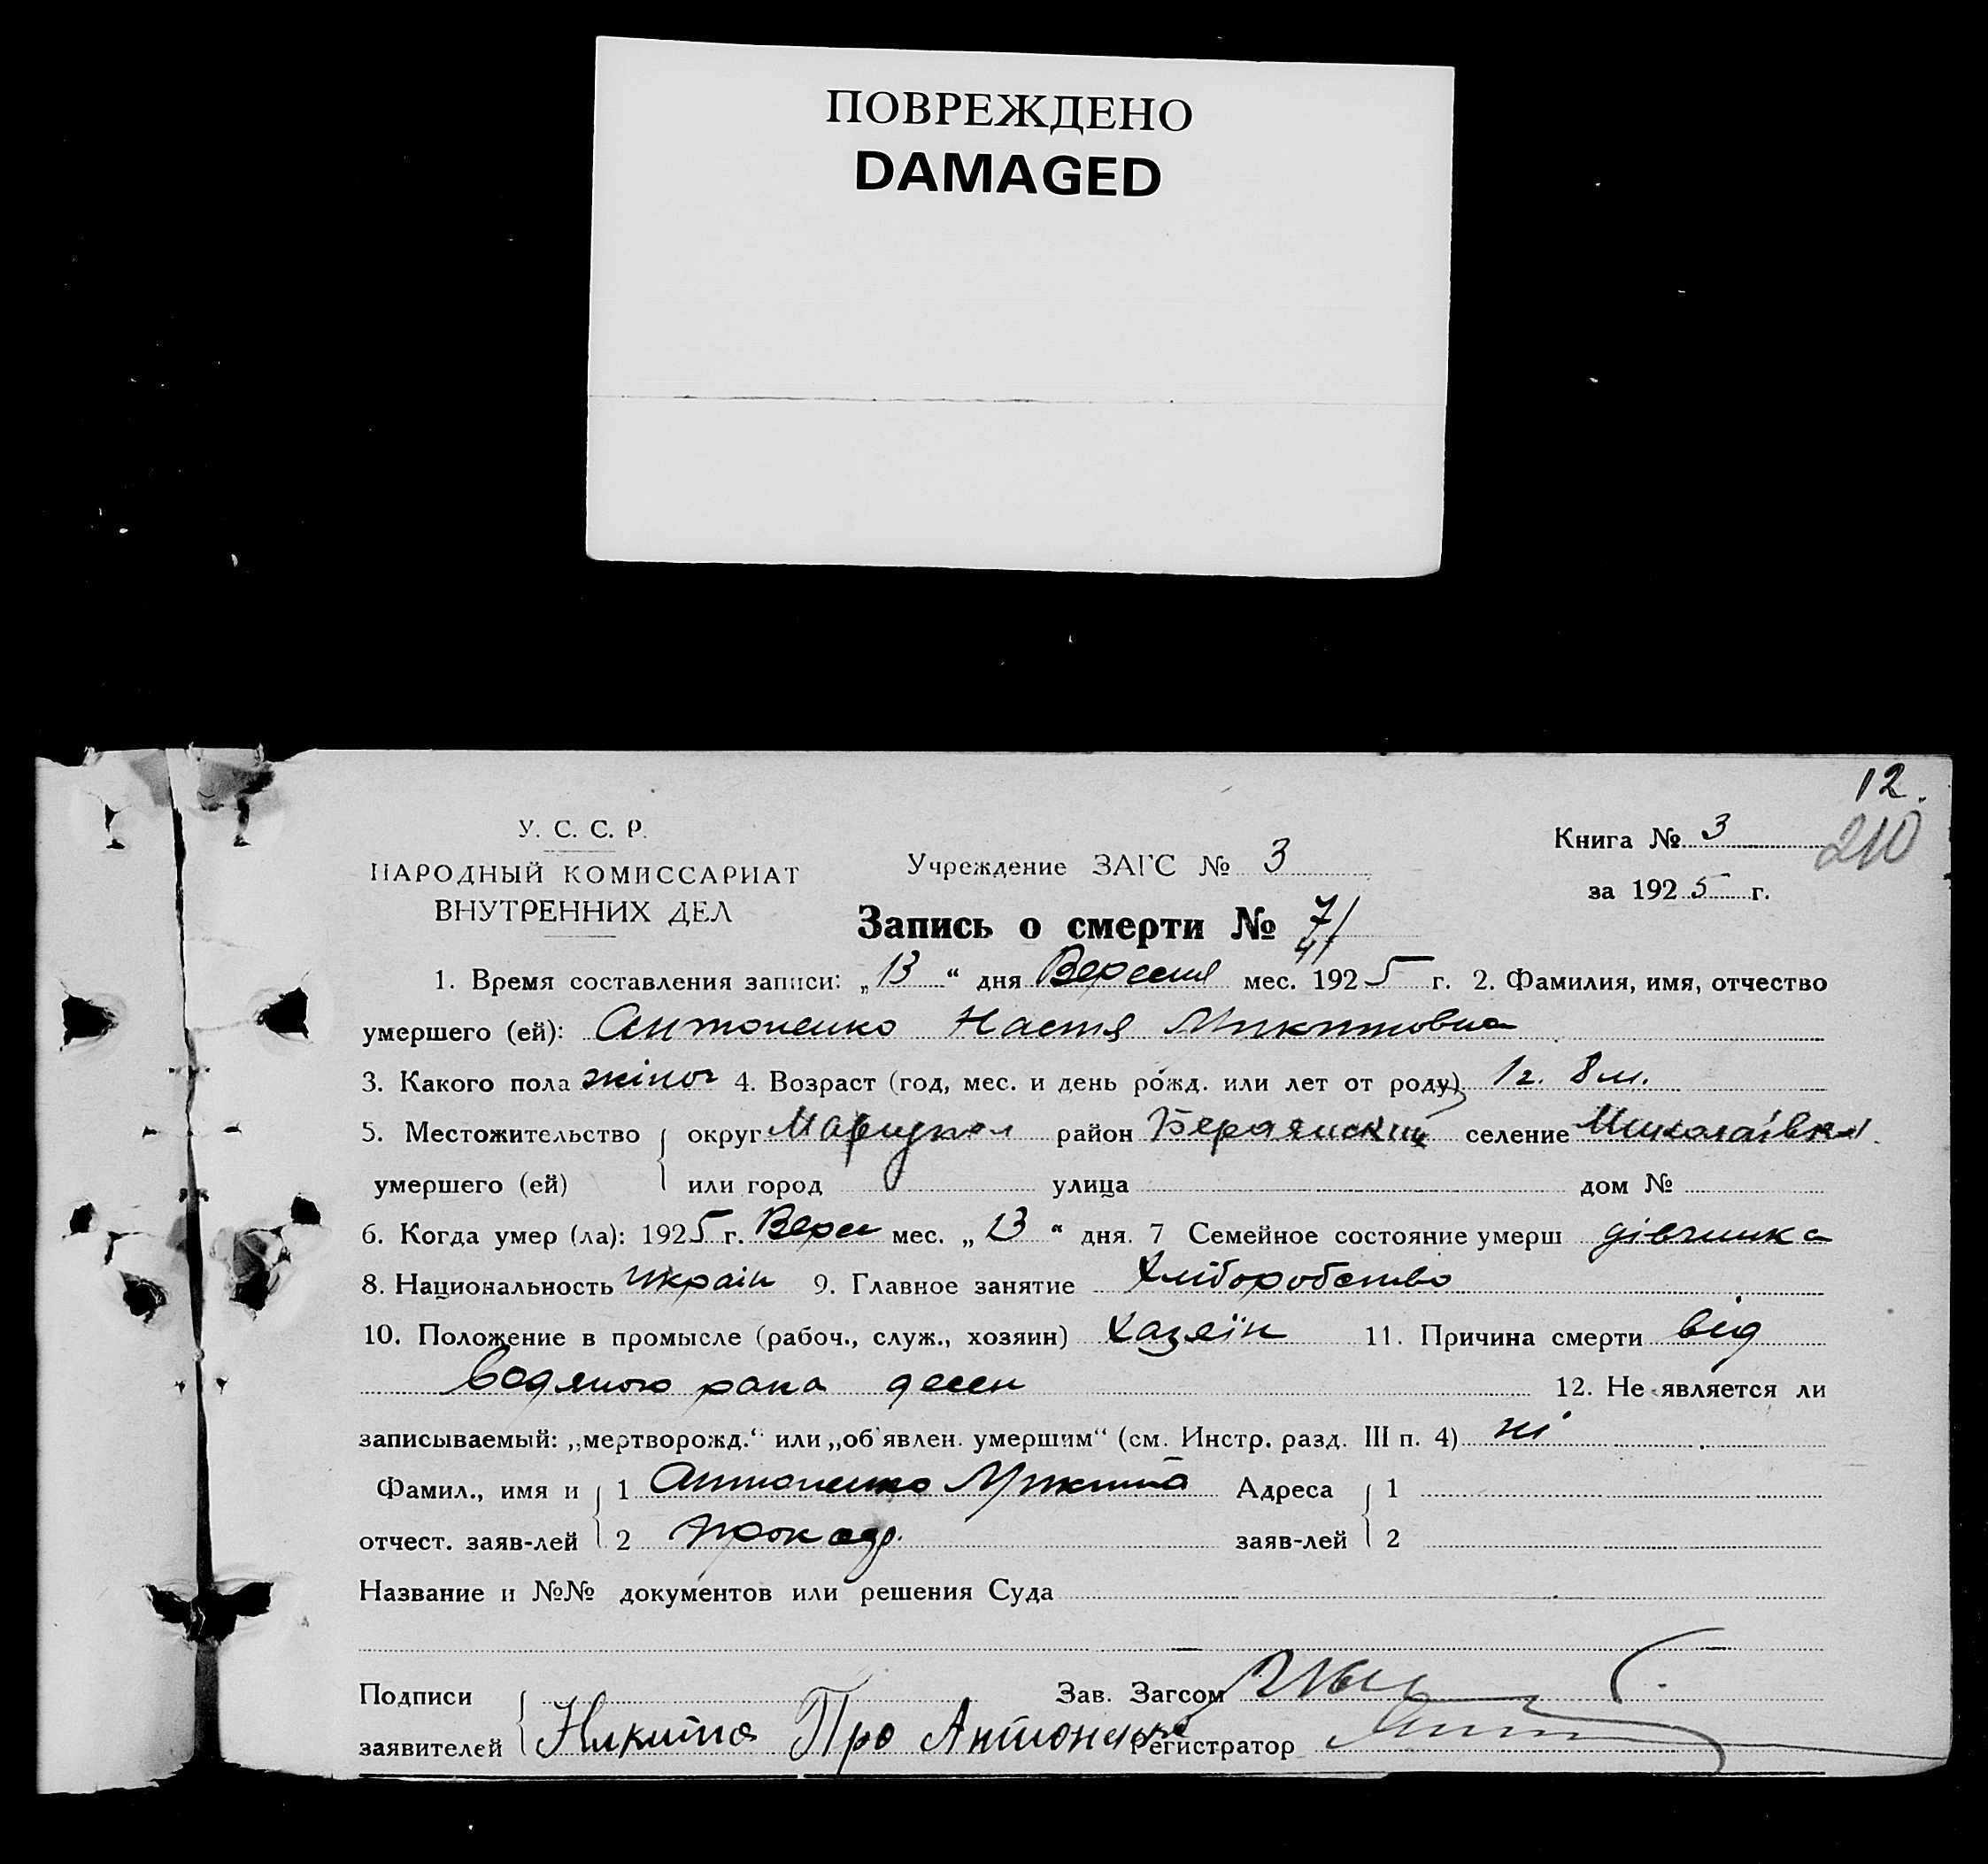 ПОВРЕЖДЕНО
DAMAGED
12.
210
У. С. С. Р.
НАРОДНЫЙ КОМИССАРИАТ
ВНУТРЕННИХ ДЕЛ
Учреждение ЗАГС № 3
Книга № 3
за 1925 г.
Запись о смерти №
1. Время составления записи: „13“ дня Вересня мес. 1925 г. 2. Фамилия, имя, отчество
умершего (ей): Антоненко Настя Микитовна
3. Какого пола жіноч 4. Возраст (год, мес. и день рожд. или лет от роду) 1г. 8м.
5. Местожительство округ Мариупол район Бердянский селение Миколаївка
умершего (ей) или город улица дом №
6. Когда умер (ла): 1925 г. Верес мес. „13“ дня. 7 Семейное состояние умерш дівчинка
8. Национальность Украін 9. Главное занятие Хліборобство
10. Положение в промысле (рабоч., служ., хозяин) Хазяїн 11. Причина смерти від
водяного рака десен 12. Не является ли
записываемый: „мертворожд.“ или „об'явлен. умершим“ (см. Инстр. разд. III п. 4) ні
Фамил., имя и 1 Антоненко Микита Адреса 1
отчест. заяв-лей 2 заяв-лей 2
Название и №№ документов или решения Суда
Подписи Зав. Загсом
заявителей Никита Про Антоненко Регистратор